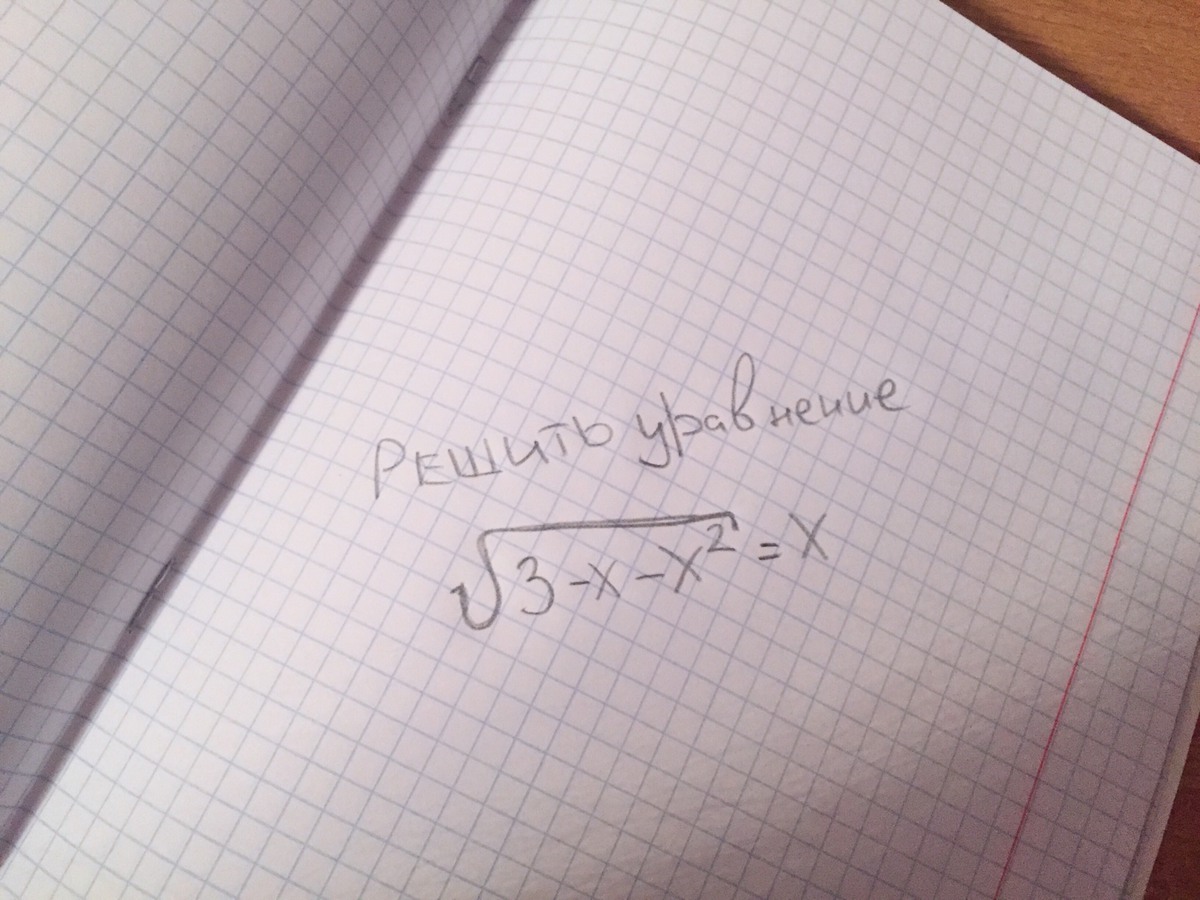 Решить уравнение
√3-x-x² = x